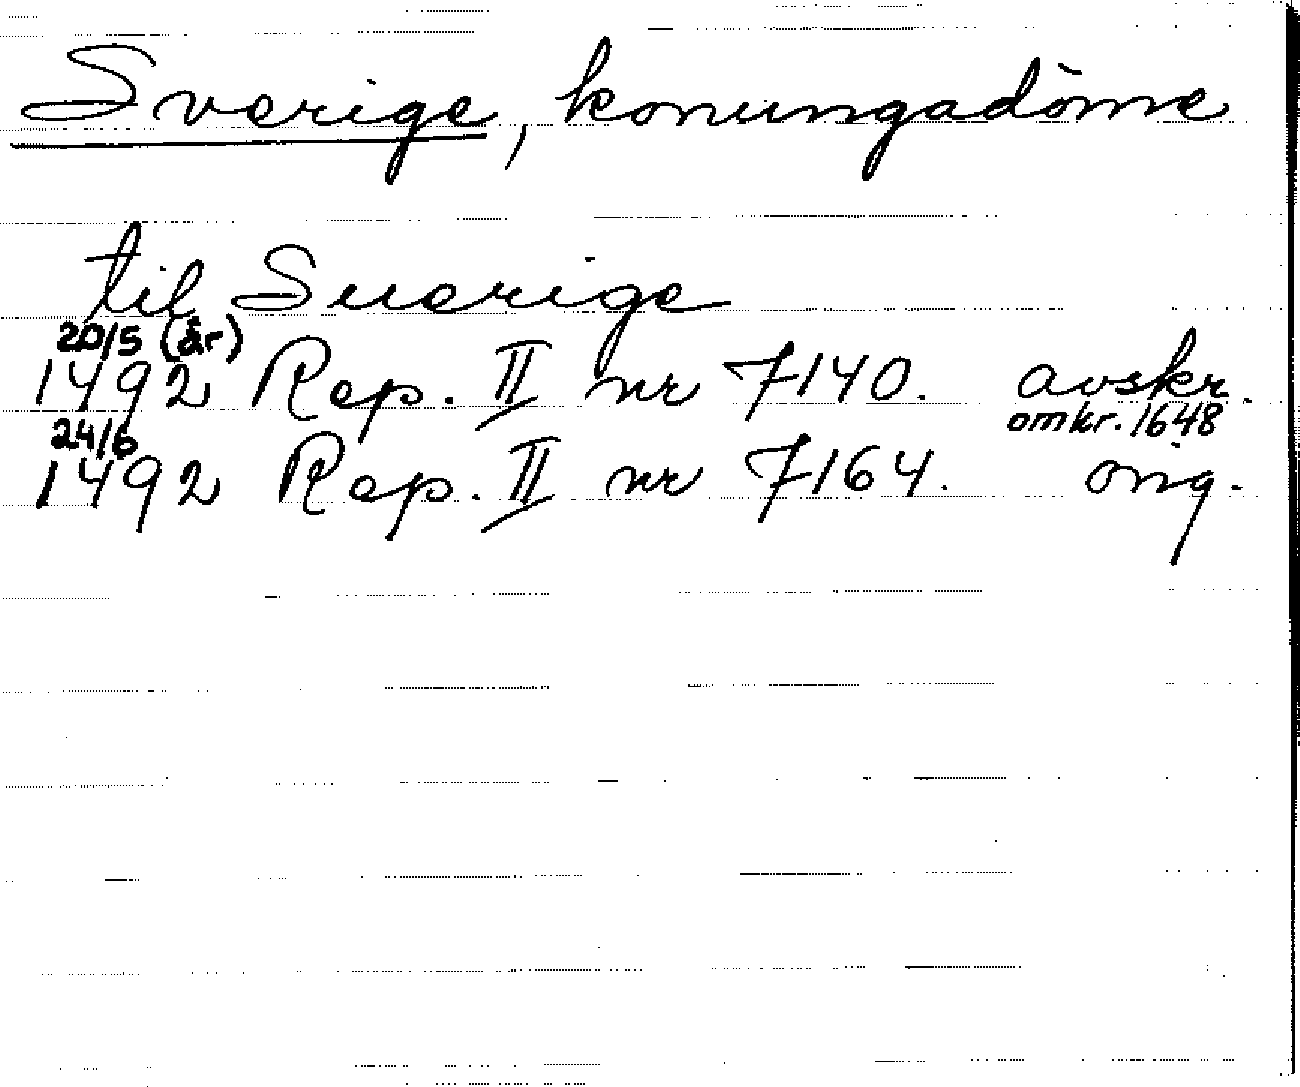 Sverige, konungadöme
til Suerige
20/5 (år)
1492 Rep. II nr 7140. avskr.
omkr. 1648
24/6
1492 Rep. II nr 7164. orig.